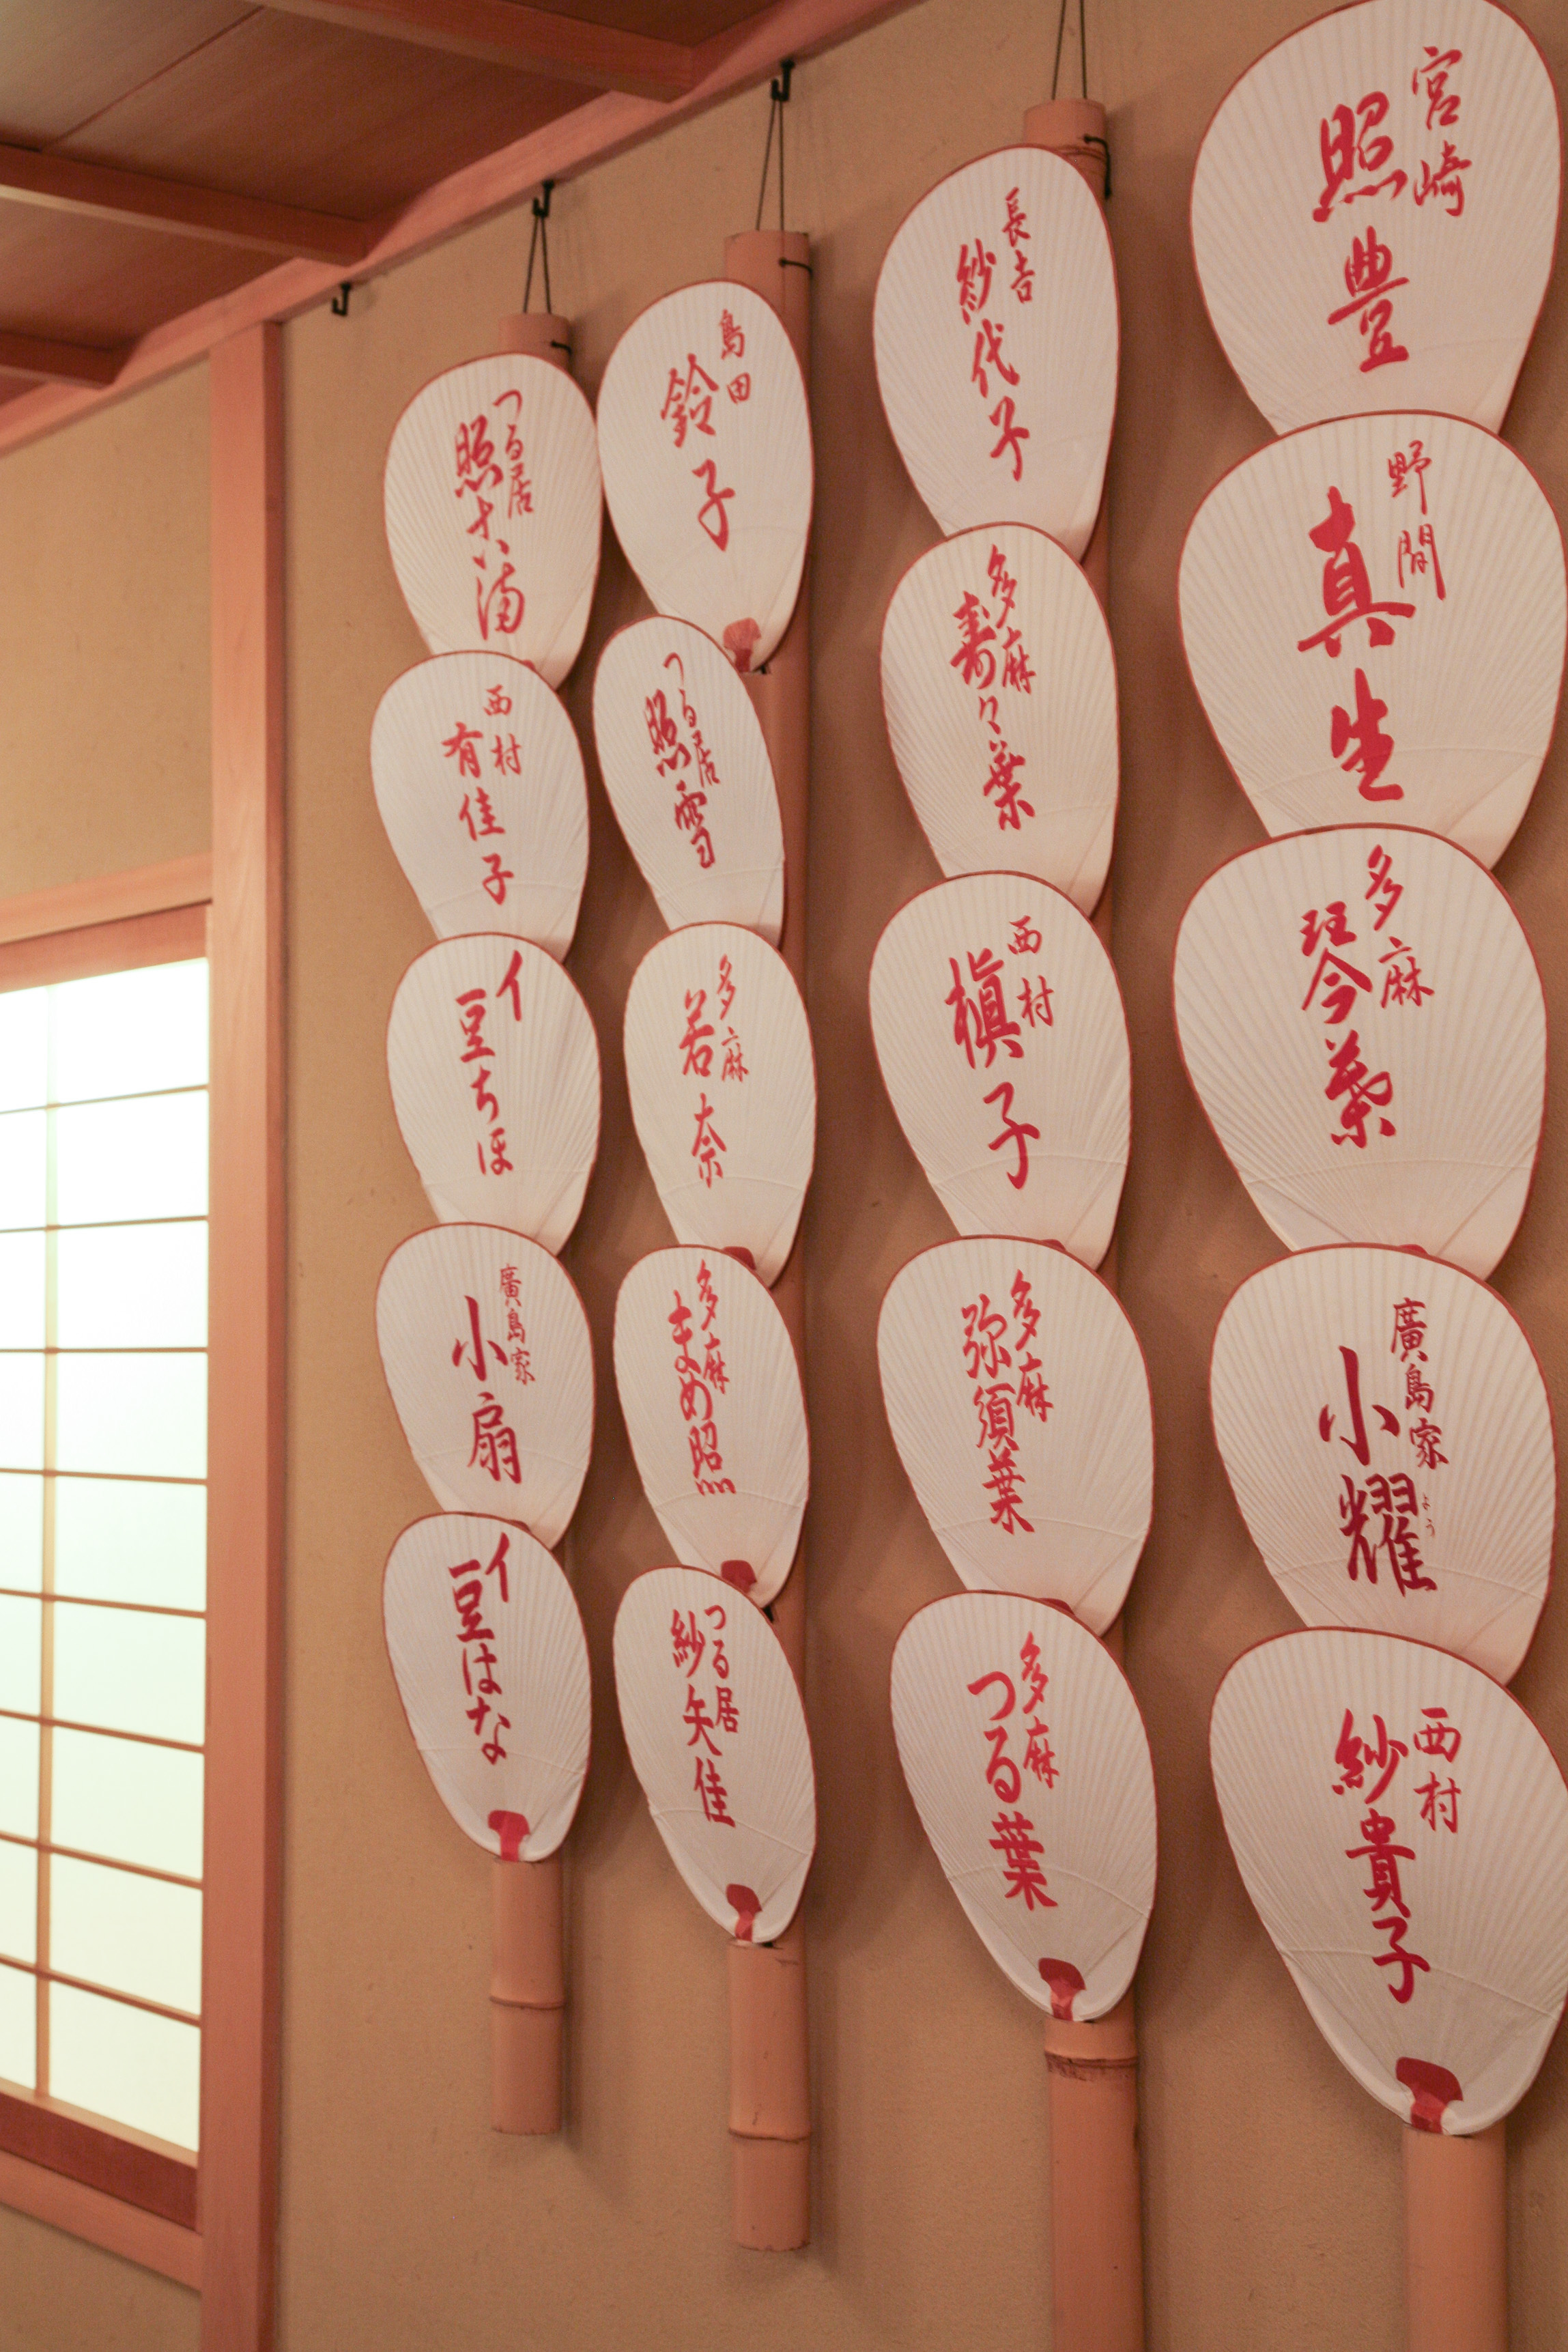 宮崎
照豊
野間
真生
多麻
琴葉
廣島家
小耀
よう
西村
紗貴子
長吉
紗代子
多麻
寿々葉
西村
槇子
多麻
弥須葉
多麻
つる葉
島田
鈴子
つる居
照雪
多麻
若奈
多麻
まめ照
つる居
紗矢佳
つる居
西村
有佳子
イ
豆ちほ
廣島家
小扇
イ
豆はな